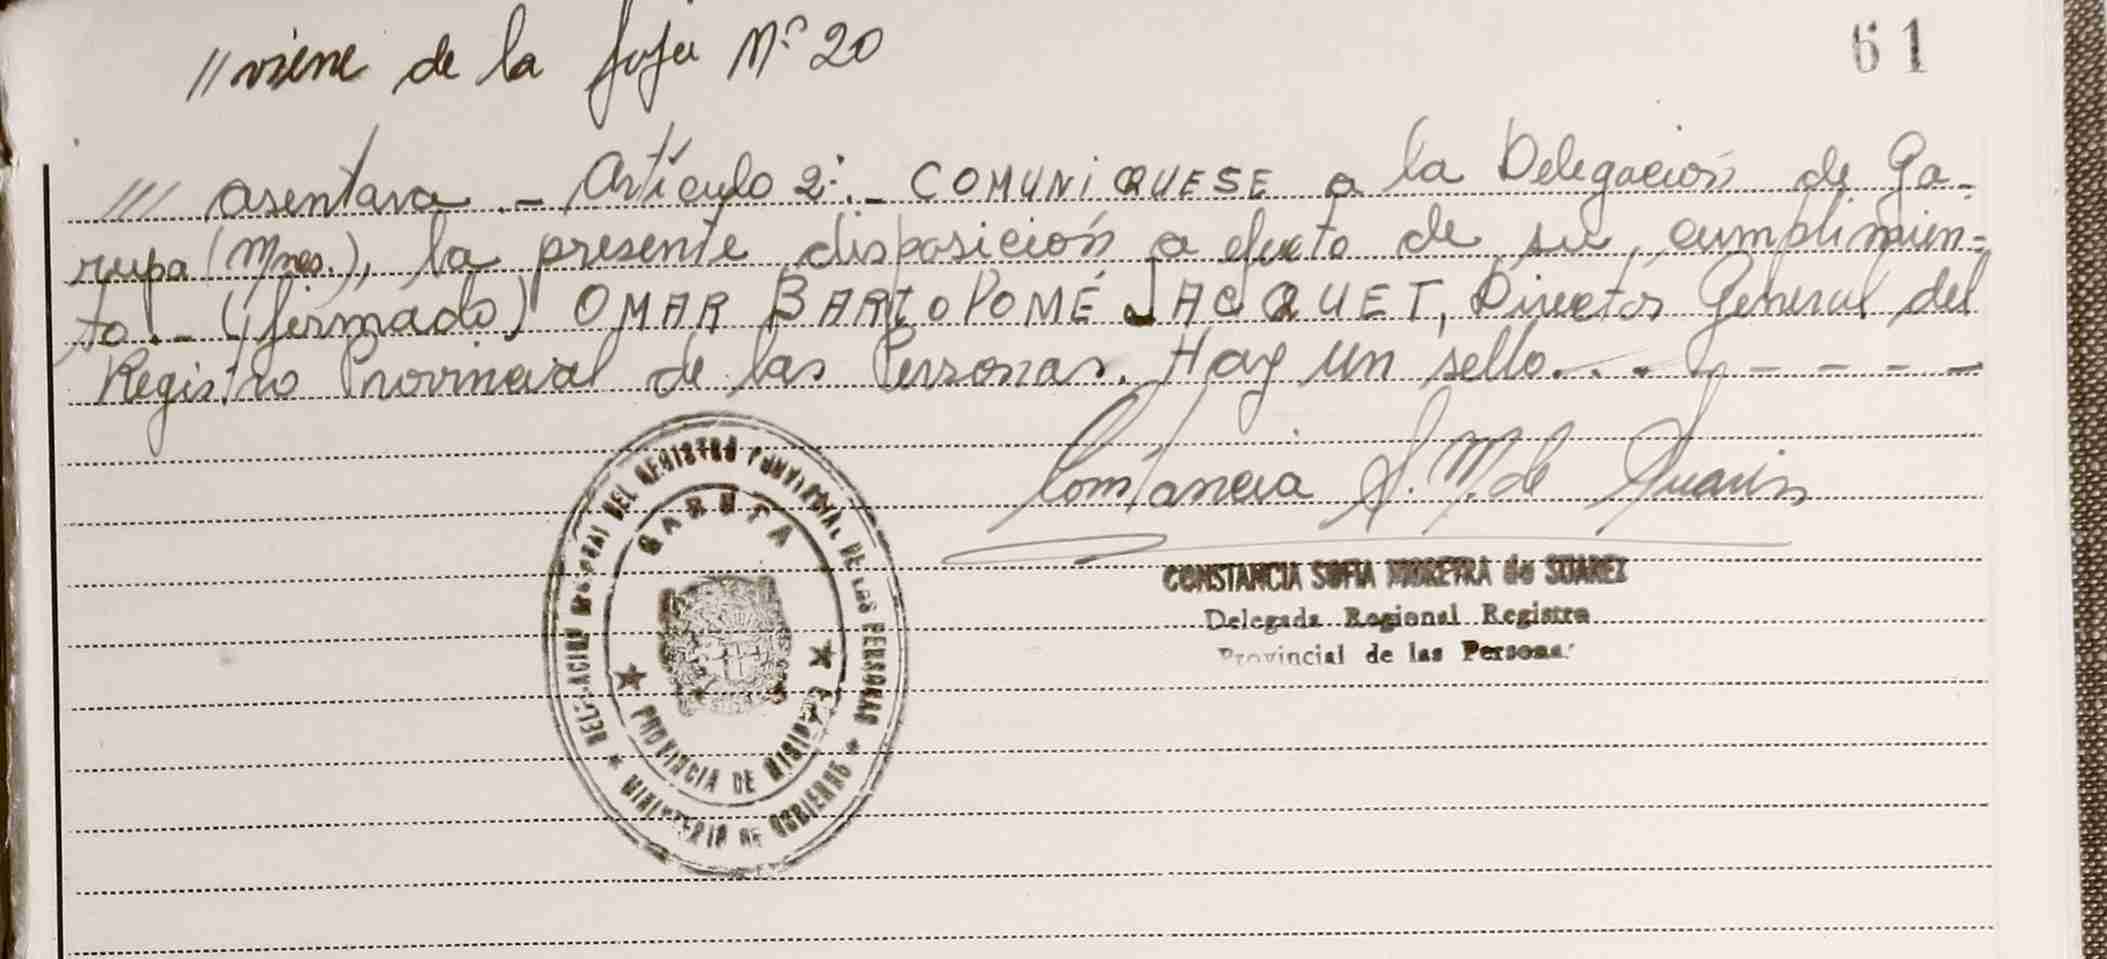 //viene de la foja Nº 20
61
/// asentara.- Artículo 2º.- COMUNIQUESE a la Delegación de Ga-
rupa (Mnes.), la presente disposición a efecto de su cumplimien-
to.- (firmado) OMAR BARTOLOMÉ JACQUET, Director General del
Registro Provincial de las Personas. Hay un sello. . - - - - - -
Constancia S. M. de Suarez
CONSTANCIA SOFIA MOREYRA de SUAREZ
Delegada Regional Registro
Provincial de las Personas
DELEGACION REGIONAL DEL REGISTRO PROVINCIAL DE LAS PERSONAS
GARUPA
PROVINCIA DE MISIONES
MINISTERIO DE GOBIERNO